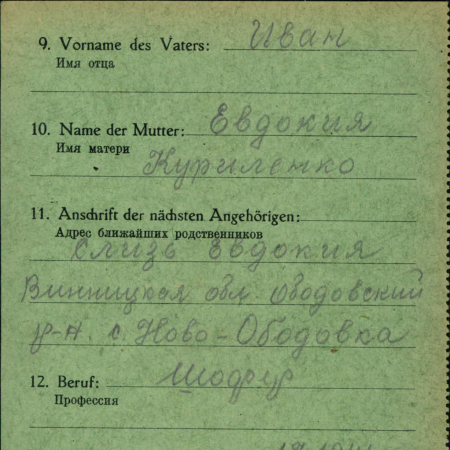 9. Vorname des Vaters: Иван
Имя отца
10. Name der Mutter: Евдокия
Имя матери
Куриленко
11. Anschrift der nächsten Angehörigen:
Адрес ближайших родственников
Слизь Евдокия
Винницкая обл. Ободовский
р-н. с. Ново-Ободовка
12. Beruf: Шофер
Профессия